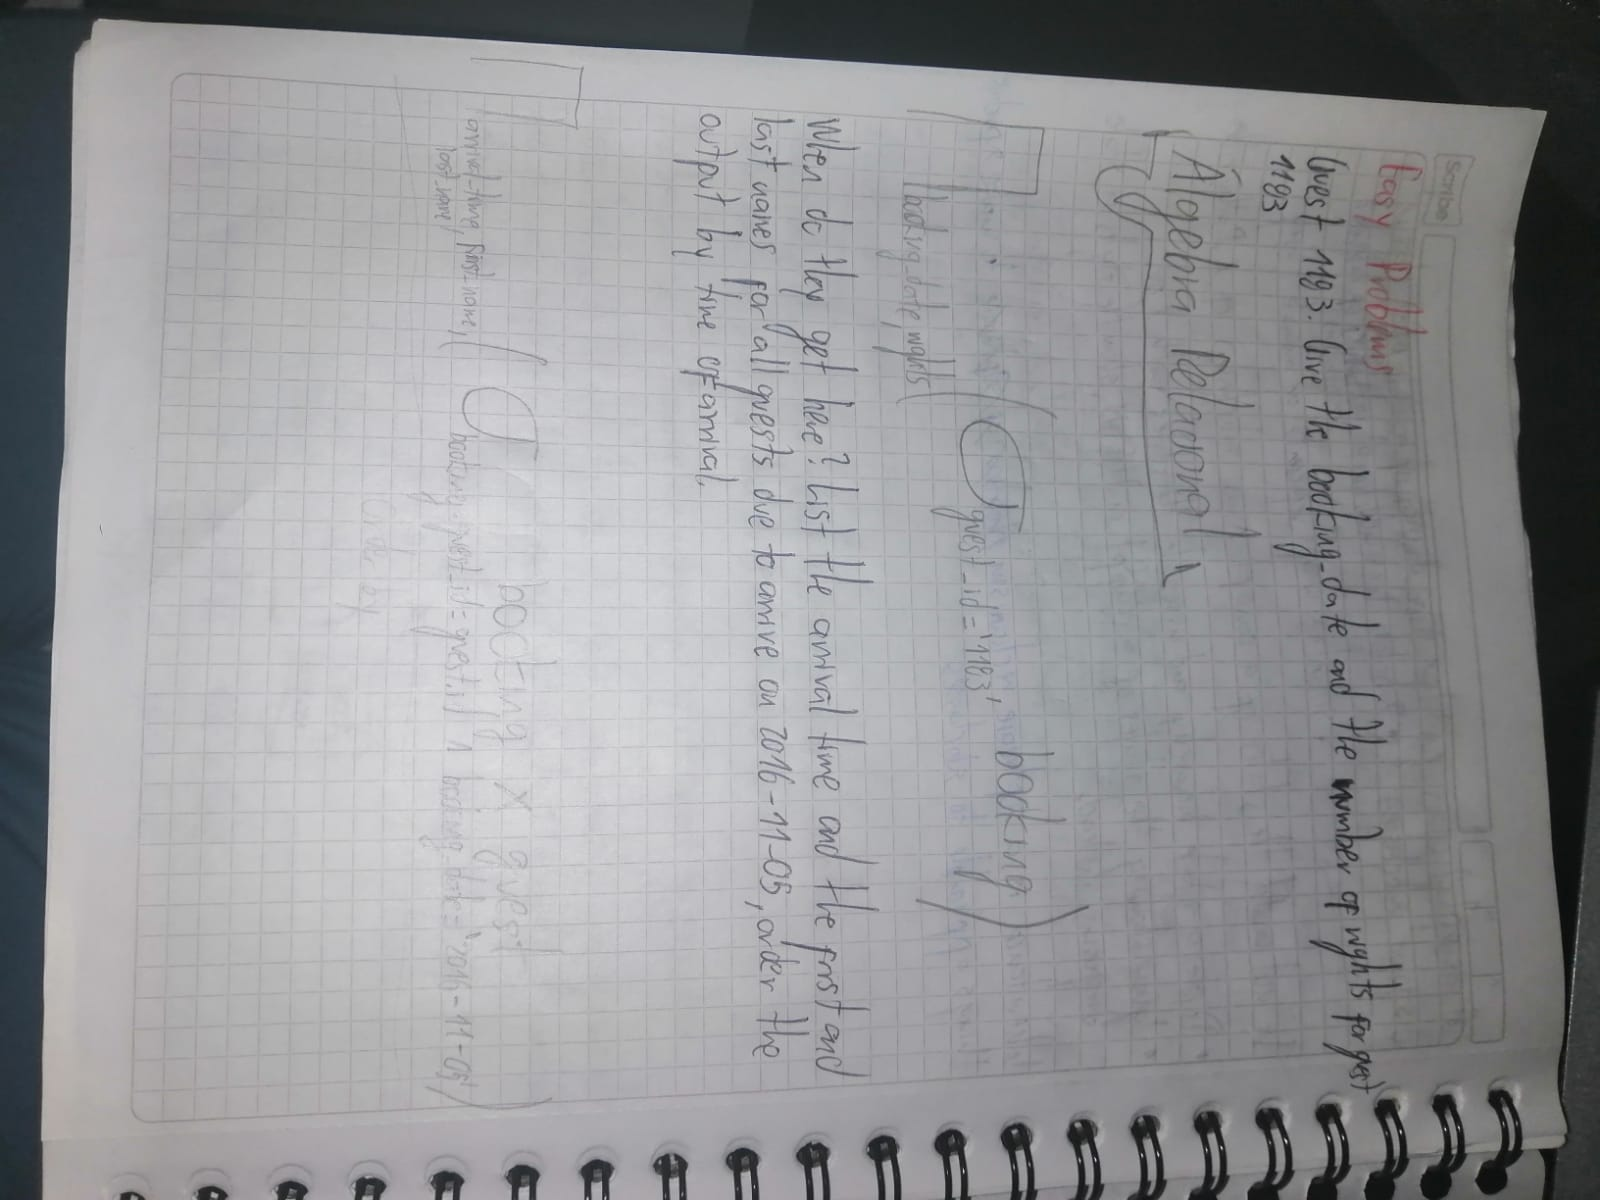 Scribe
Easy Problms
Guest 1183. Give the booking_date and the number of nights for gest
1183
Álgebra Relacional
π booking_date, nights ( σ guest_id = '1183' booking )
When do they get here? List the arrival time and the first and
last names for all guests due to arrive on 2016-11-05, order the
output by time of arrival.
π arrival_time, first_name, last_name ( σ booking.guest_id = guest.id ∧ booking_date = '2016-11-05' booking X guest )
Order by